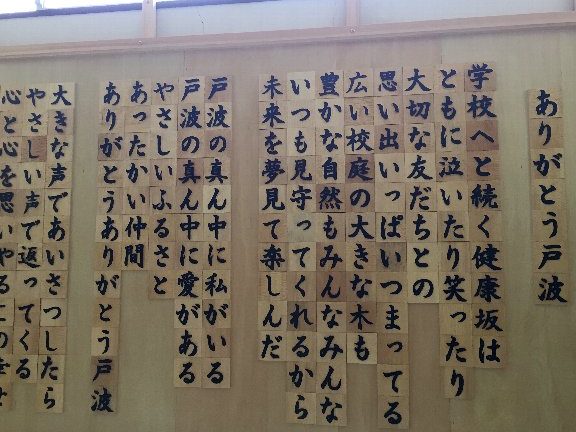 ありがとう戸波
学校へと続く健康坂は
ともに泣いたり笑ったり
大切な友だちとの
思い出いっぱいつまってる
広い校庭の大きな木も
豊かな自然もみんなみんな
いつも見守ってくれるから
未来を夢見て楽しんだ
戸波の真ん中に私がいる
戸波の真ん中に愛がある
やさしいふるさと
あったかい仲間
ありがとうありがとう戸波
大きな声であいさつしたら
やさしい声で返ってくる
心と心を思いやる